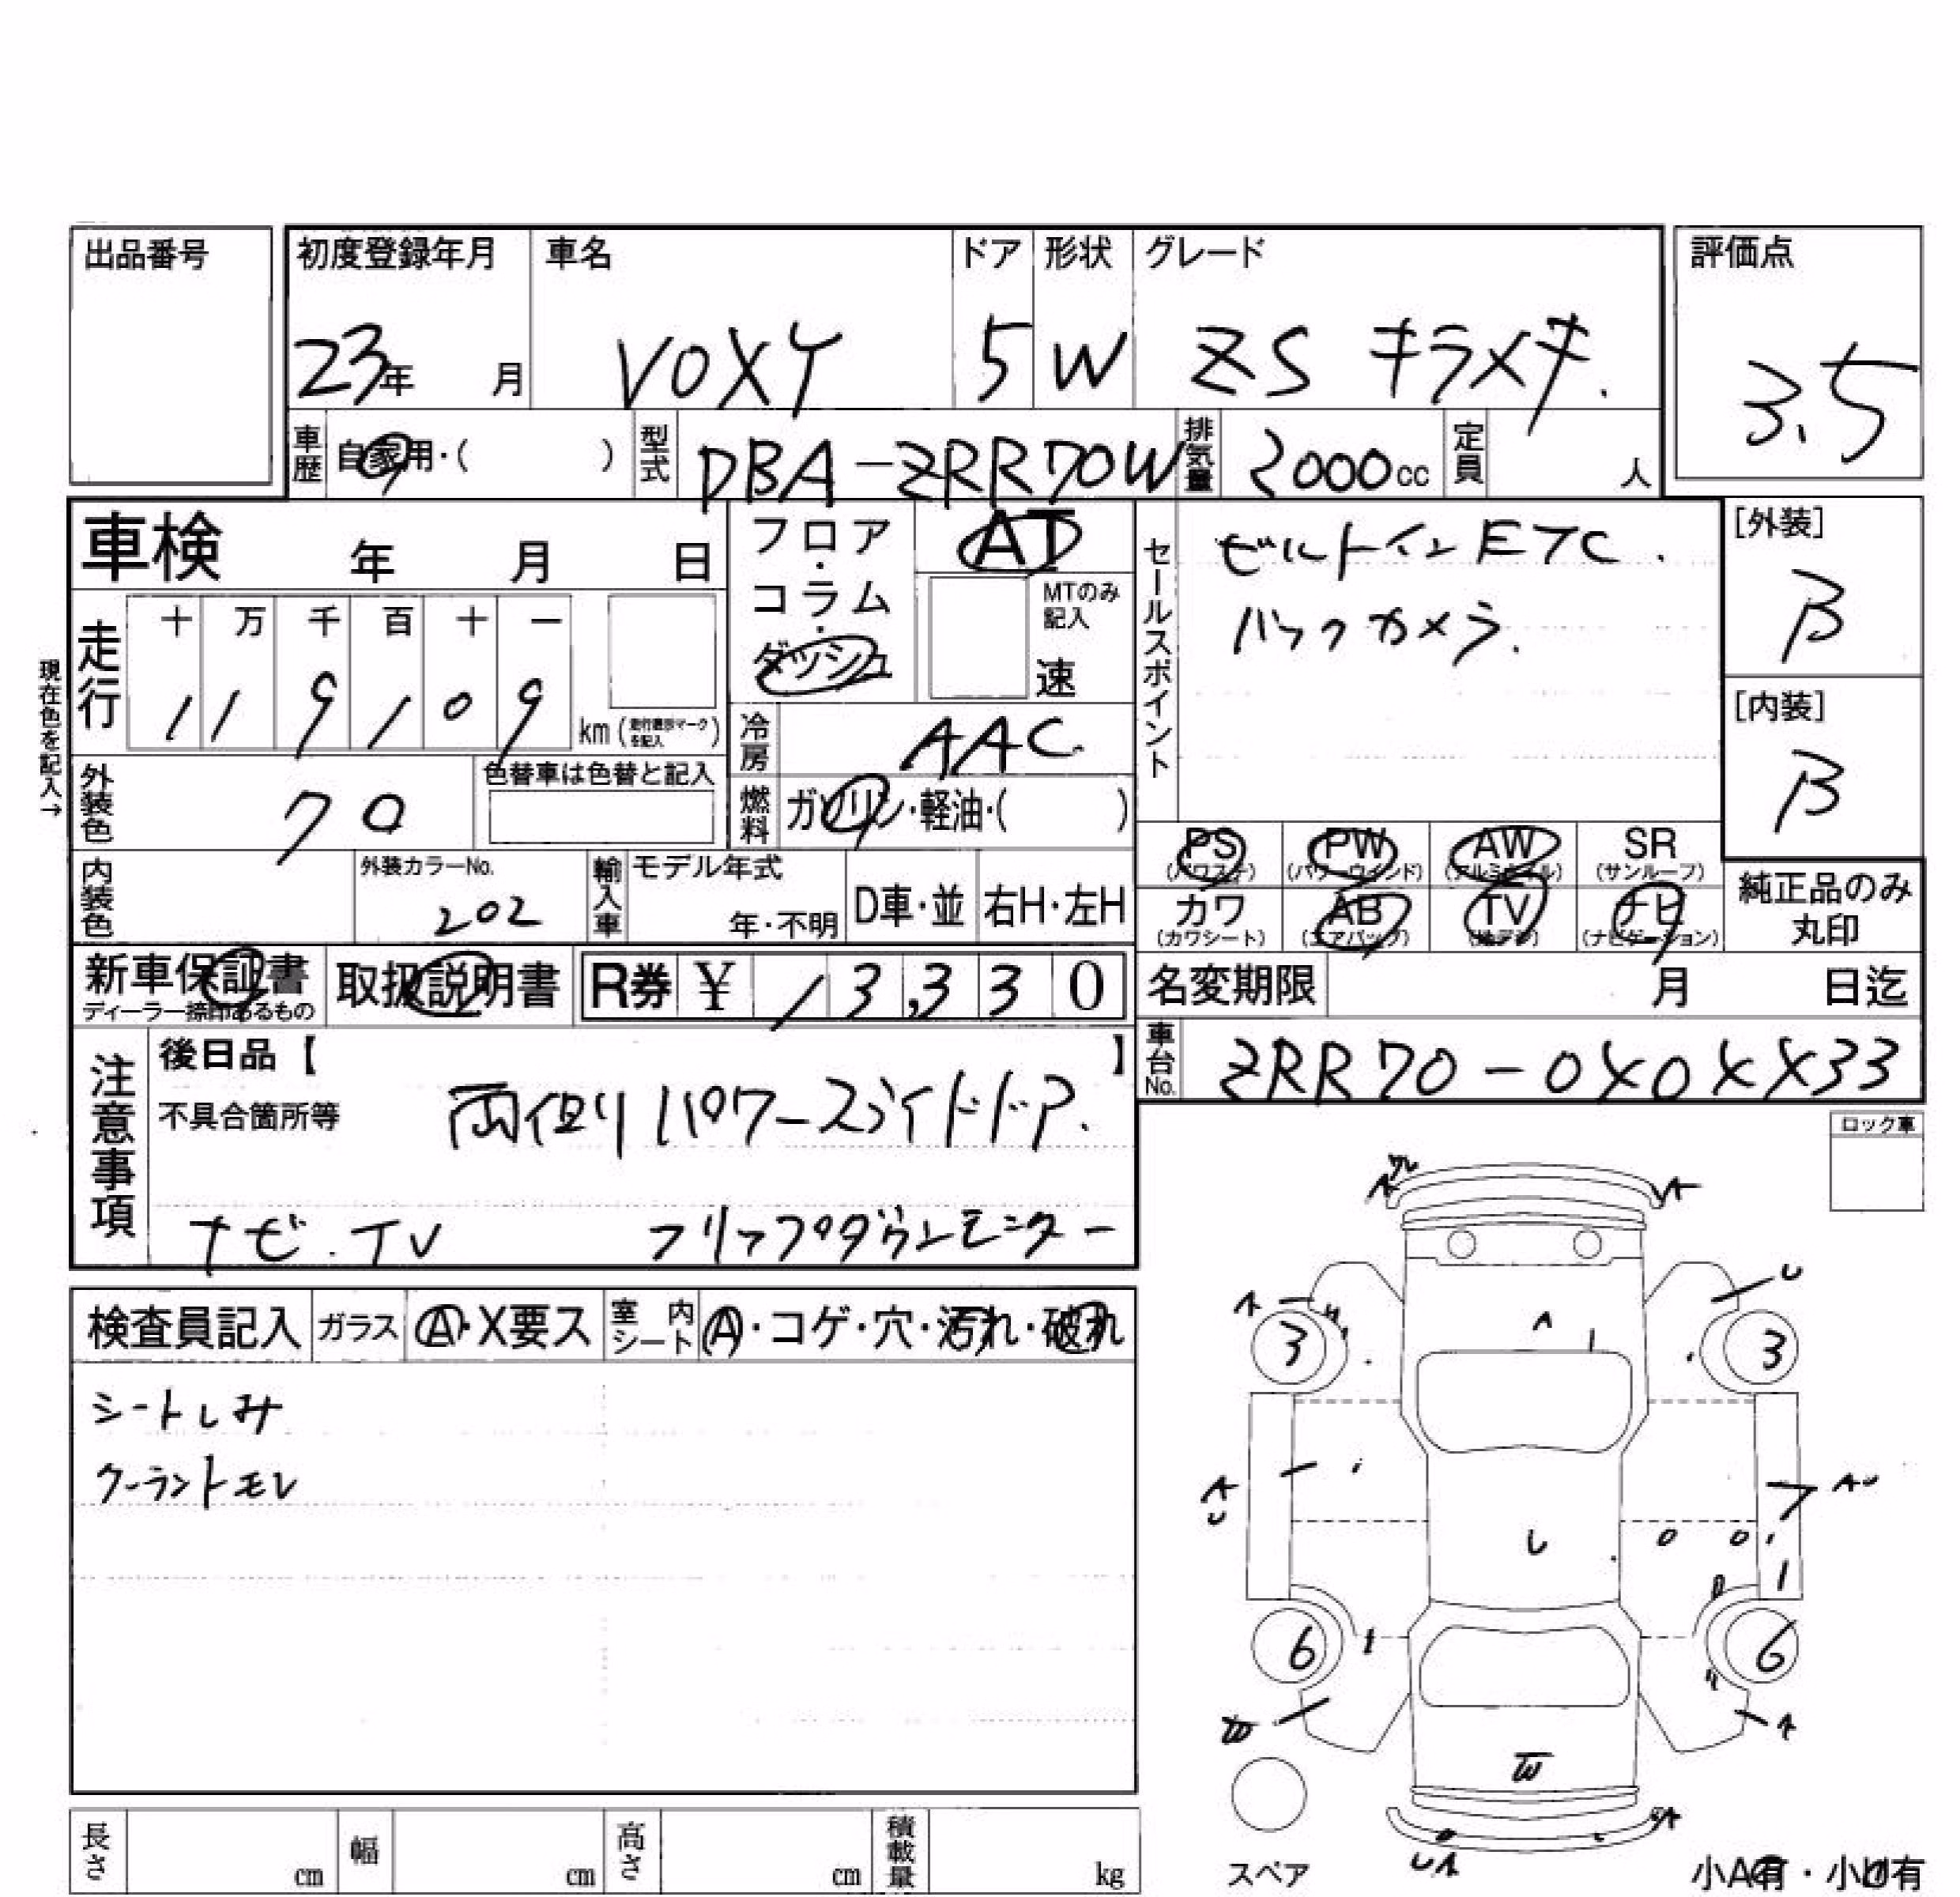 出品番号
初度登録年月 車名 ドア 形状 グレード 評価点
23年 月 VOXY 5 W ZS キラメキ. 3.5
車歴 自家用・( ) 型式 DBA-ZRR70W 排気量 2000cc 定員 人
車検 年 月 日
フロア・コラム・ダッシュ
AT
MTのみ記入
速
セールスポイント
ビルトインETC.
バックカメラ.
[外装]
B
[内装]
B
現在色を記入→
走行 十 万 千 百 十 一
1 1 9 1 0 9 km (走行メーターマークを記入)
冷房 AAC
外装色 クロ
色替車は色替と記入
燃料 ガソリン・軽油・( )
PS (パワステ) PW (パワーウインド) AW (アルミホイル) SR (サンルーフ)
カワ (カワシート) AB (エアバッグ) TV (地デジ) ナビ (ナビゲーション)
純正品のみ丸印
内装色
外装カラーNo.
202
輸入車 モデル年式
年・不明 D車・並 右H・左H
新車保証書
ディーラー捺印あるもの
取扱説明書 R券 ¥ 13,330
名変期限 月 日迄
車台No. ZRR70-0X0XX33
注意事項
後日品【 】
不具合箇所等
両側パワースライドドア.
ナビ.TV フリップダウンモニター
ロック車
検査員記入 ガラス A・X要ス 室内シート A・コゲ・穴・汚れ・破れ
シートしみ
クーラントモレ
A
A
U
A
3
3
A
U
AU
U
6
6
W
A
W
UA
スペア
小A有・小U有
長さ cm 幅 cm 高さ cm 積載量 kg